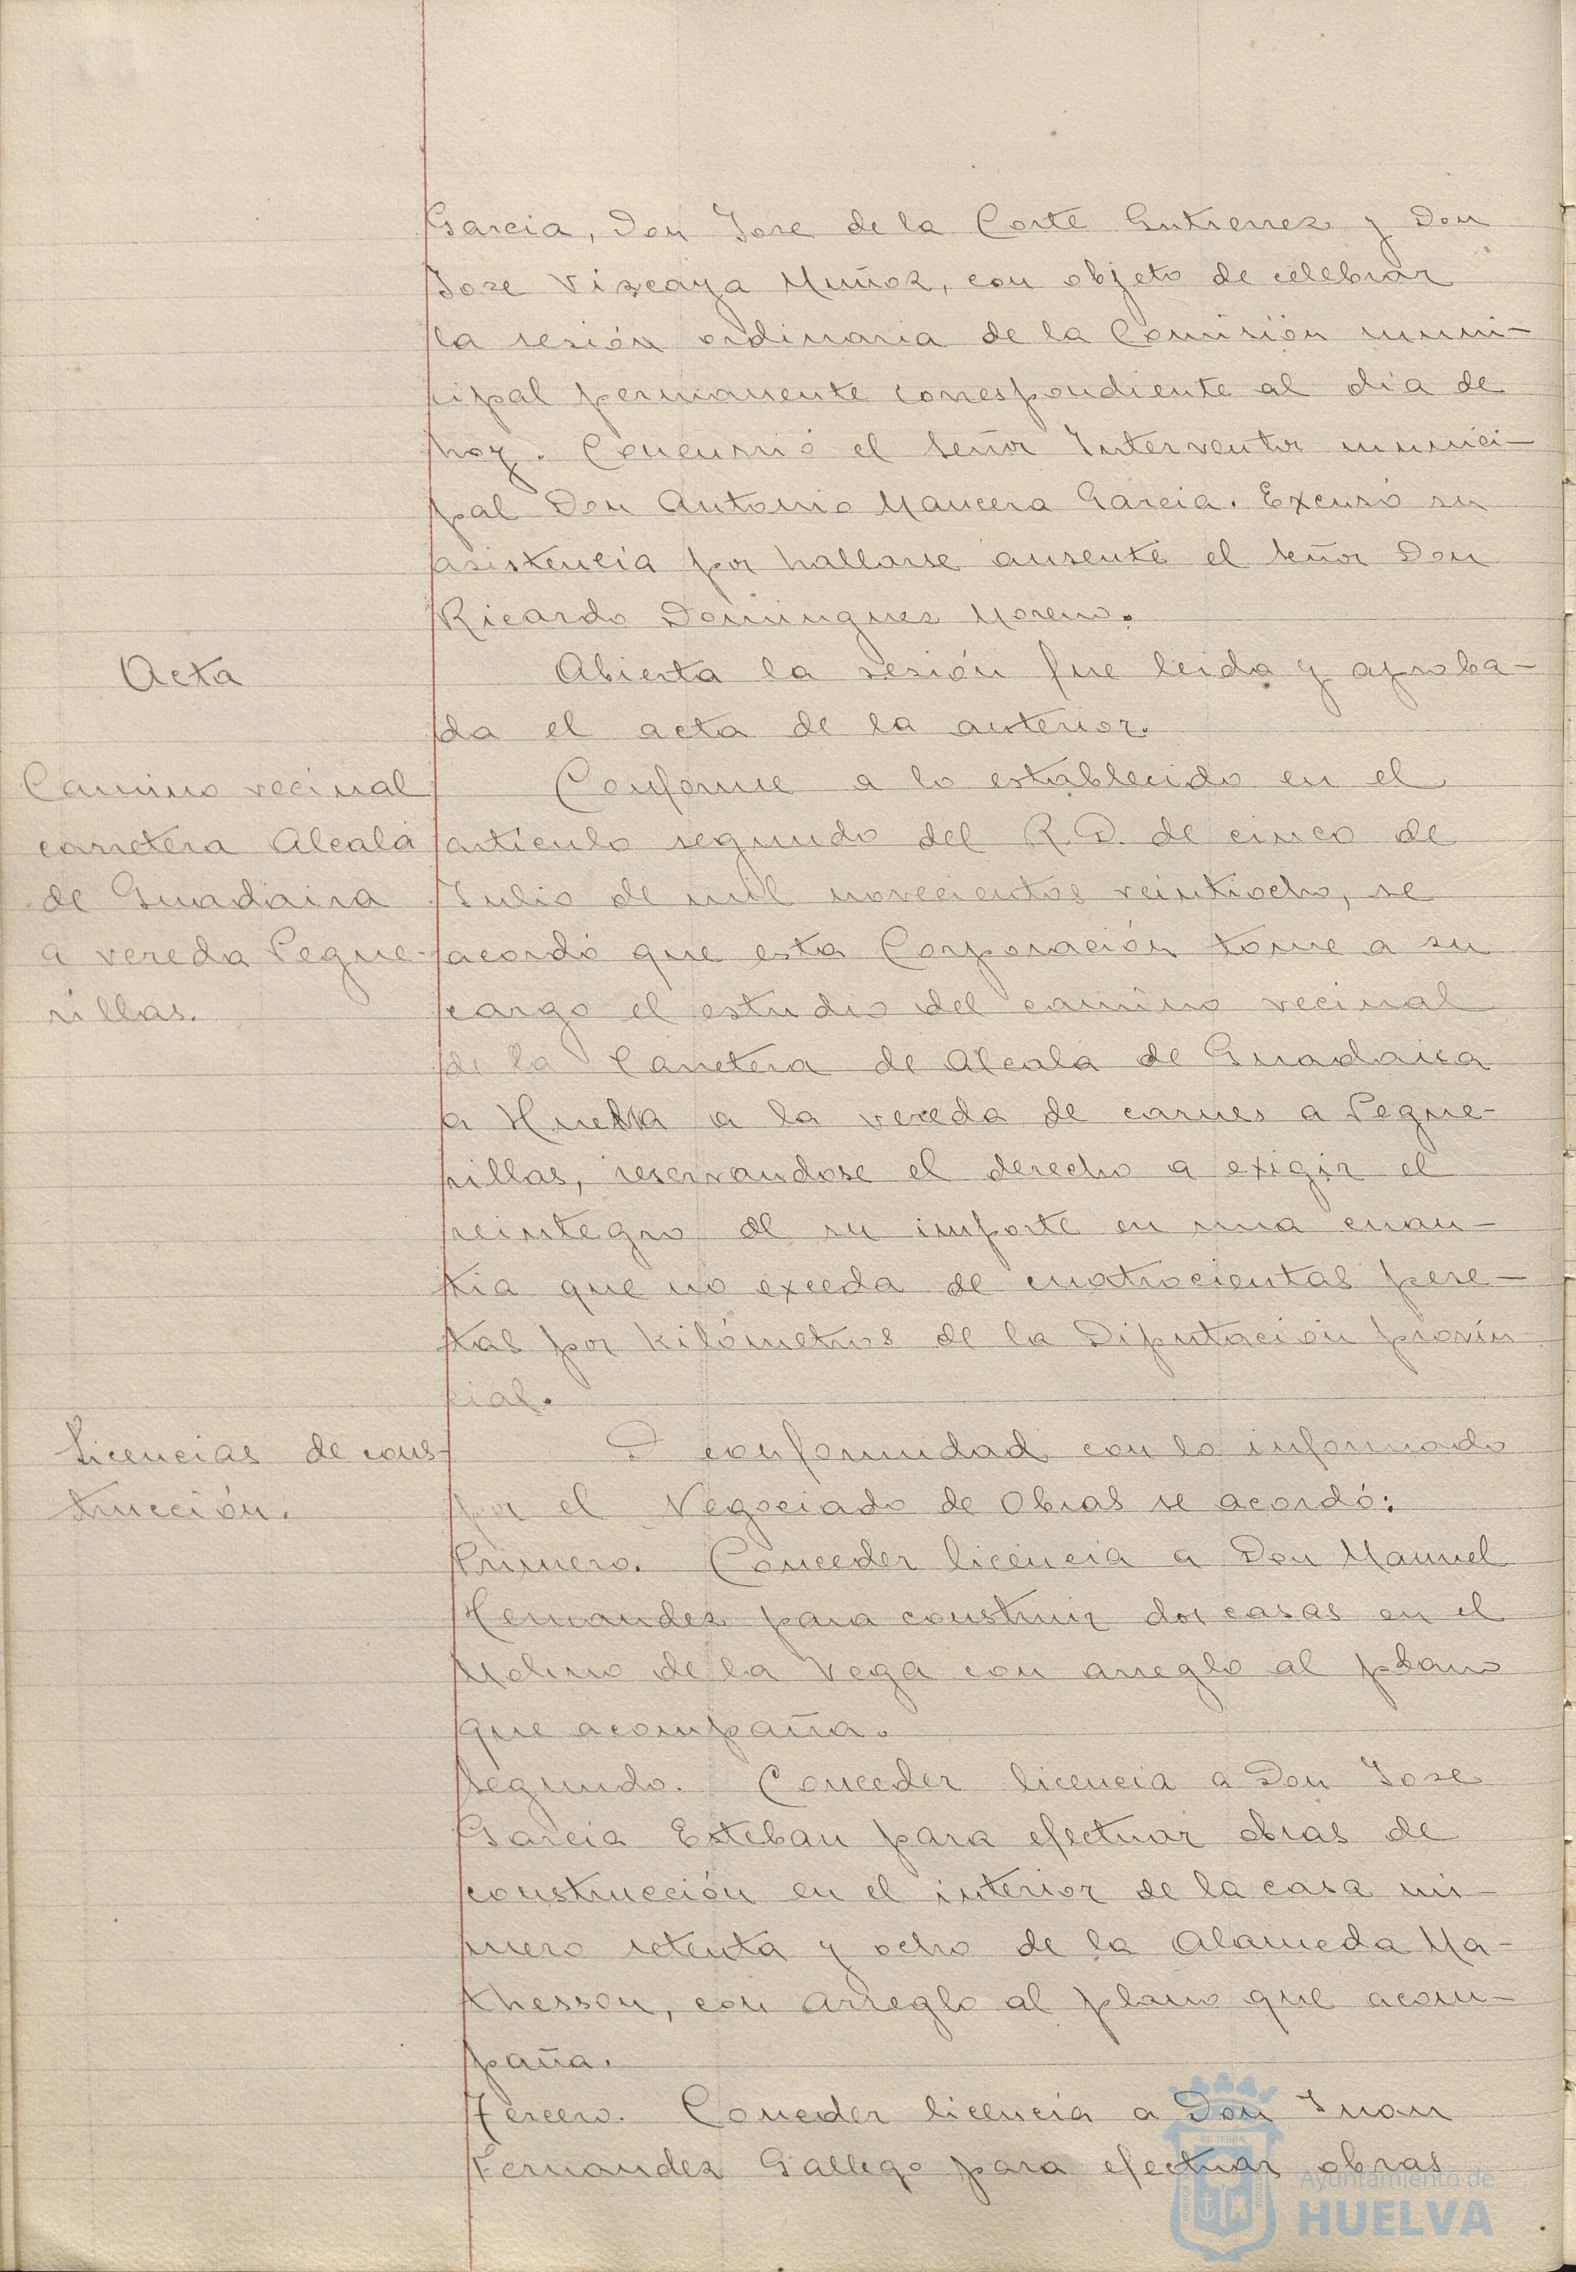 Garcia, Don Jose de la Corte Gutierrez y Don
Jose Vizcaya Muñoz, con objeto de celebrar
la sesión ordinaria de la Comisión muni-
cipal permanente correspondiente al dia de
hoy. Concurrió el Señor Interventor munici-
pal Don Antonio Mancera Garcia. Excusó su
asistencia por hallarse ausente el Señor Don
Ricardo Dominguez Moreno.
Acta
Abierta la sesión fue leida y aproba-
da el acta de la anterior.
Camino vecinal
carretera Alcalá
de Guadaira
a vereda Pegue-
rillas.
Conforme a lo establecido en el
artículo segundo del R.D. de cinco de
Julio de mil novecientos veintiocho, se
acordó que esta Corporación tome a su
cargo el estudio del camino vecinal
de la Carretera de Alcalá de Guadaira
a Huelva a la vereda de carnes a Pegue-
rillas, reservandose el derecho a exigir el
reintegro de su importe en una cuan-
tia que no exceda de cuatrocientas pese-
tas por kilómetros de la Diputación provin
cial.
Licencias de cons-
trucción.
D conformidad con lo informado
por el Negociado de Obras se acordó:
Primero. Conceder licencia a Don Manuel
Hernandez para construir dos casas en el
Molino de la Vega con arreglo al plano
que acompaña.
Segundo. Conceder licencia a Don Jose
Garcia Esteban para efectuar obras de
construcción en el interior de la casa nú-
mero setenta y ocho de la Alameda Ma-
thesson, con arreglo al plano que acom-
paña.
Tercero. Conceder licencia a Don Juan
Fernandez Gallego para efectuar obras
Ayuntamiento de
HUELVA